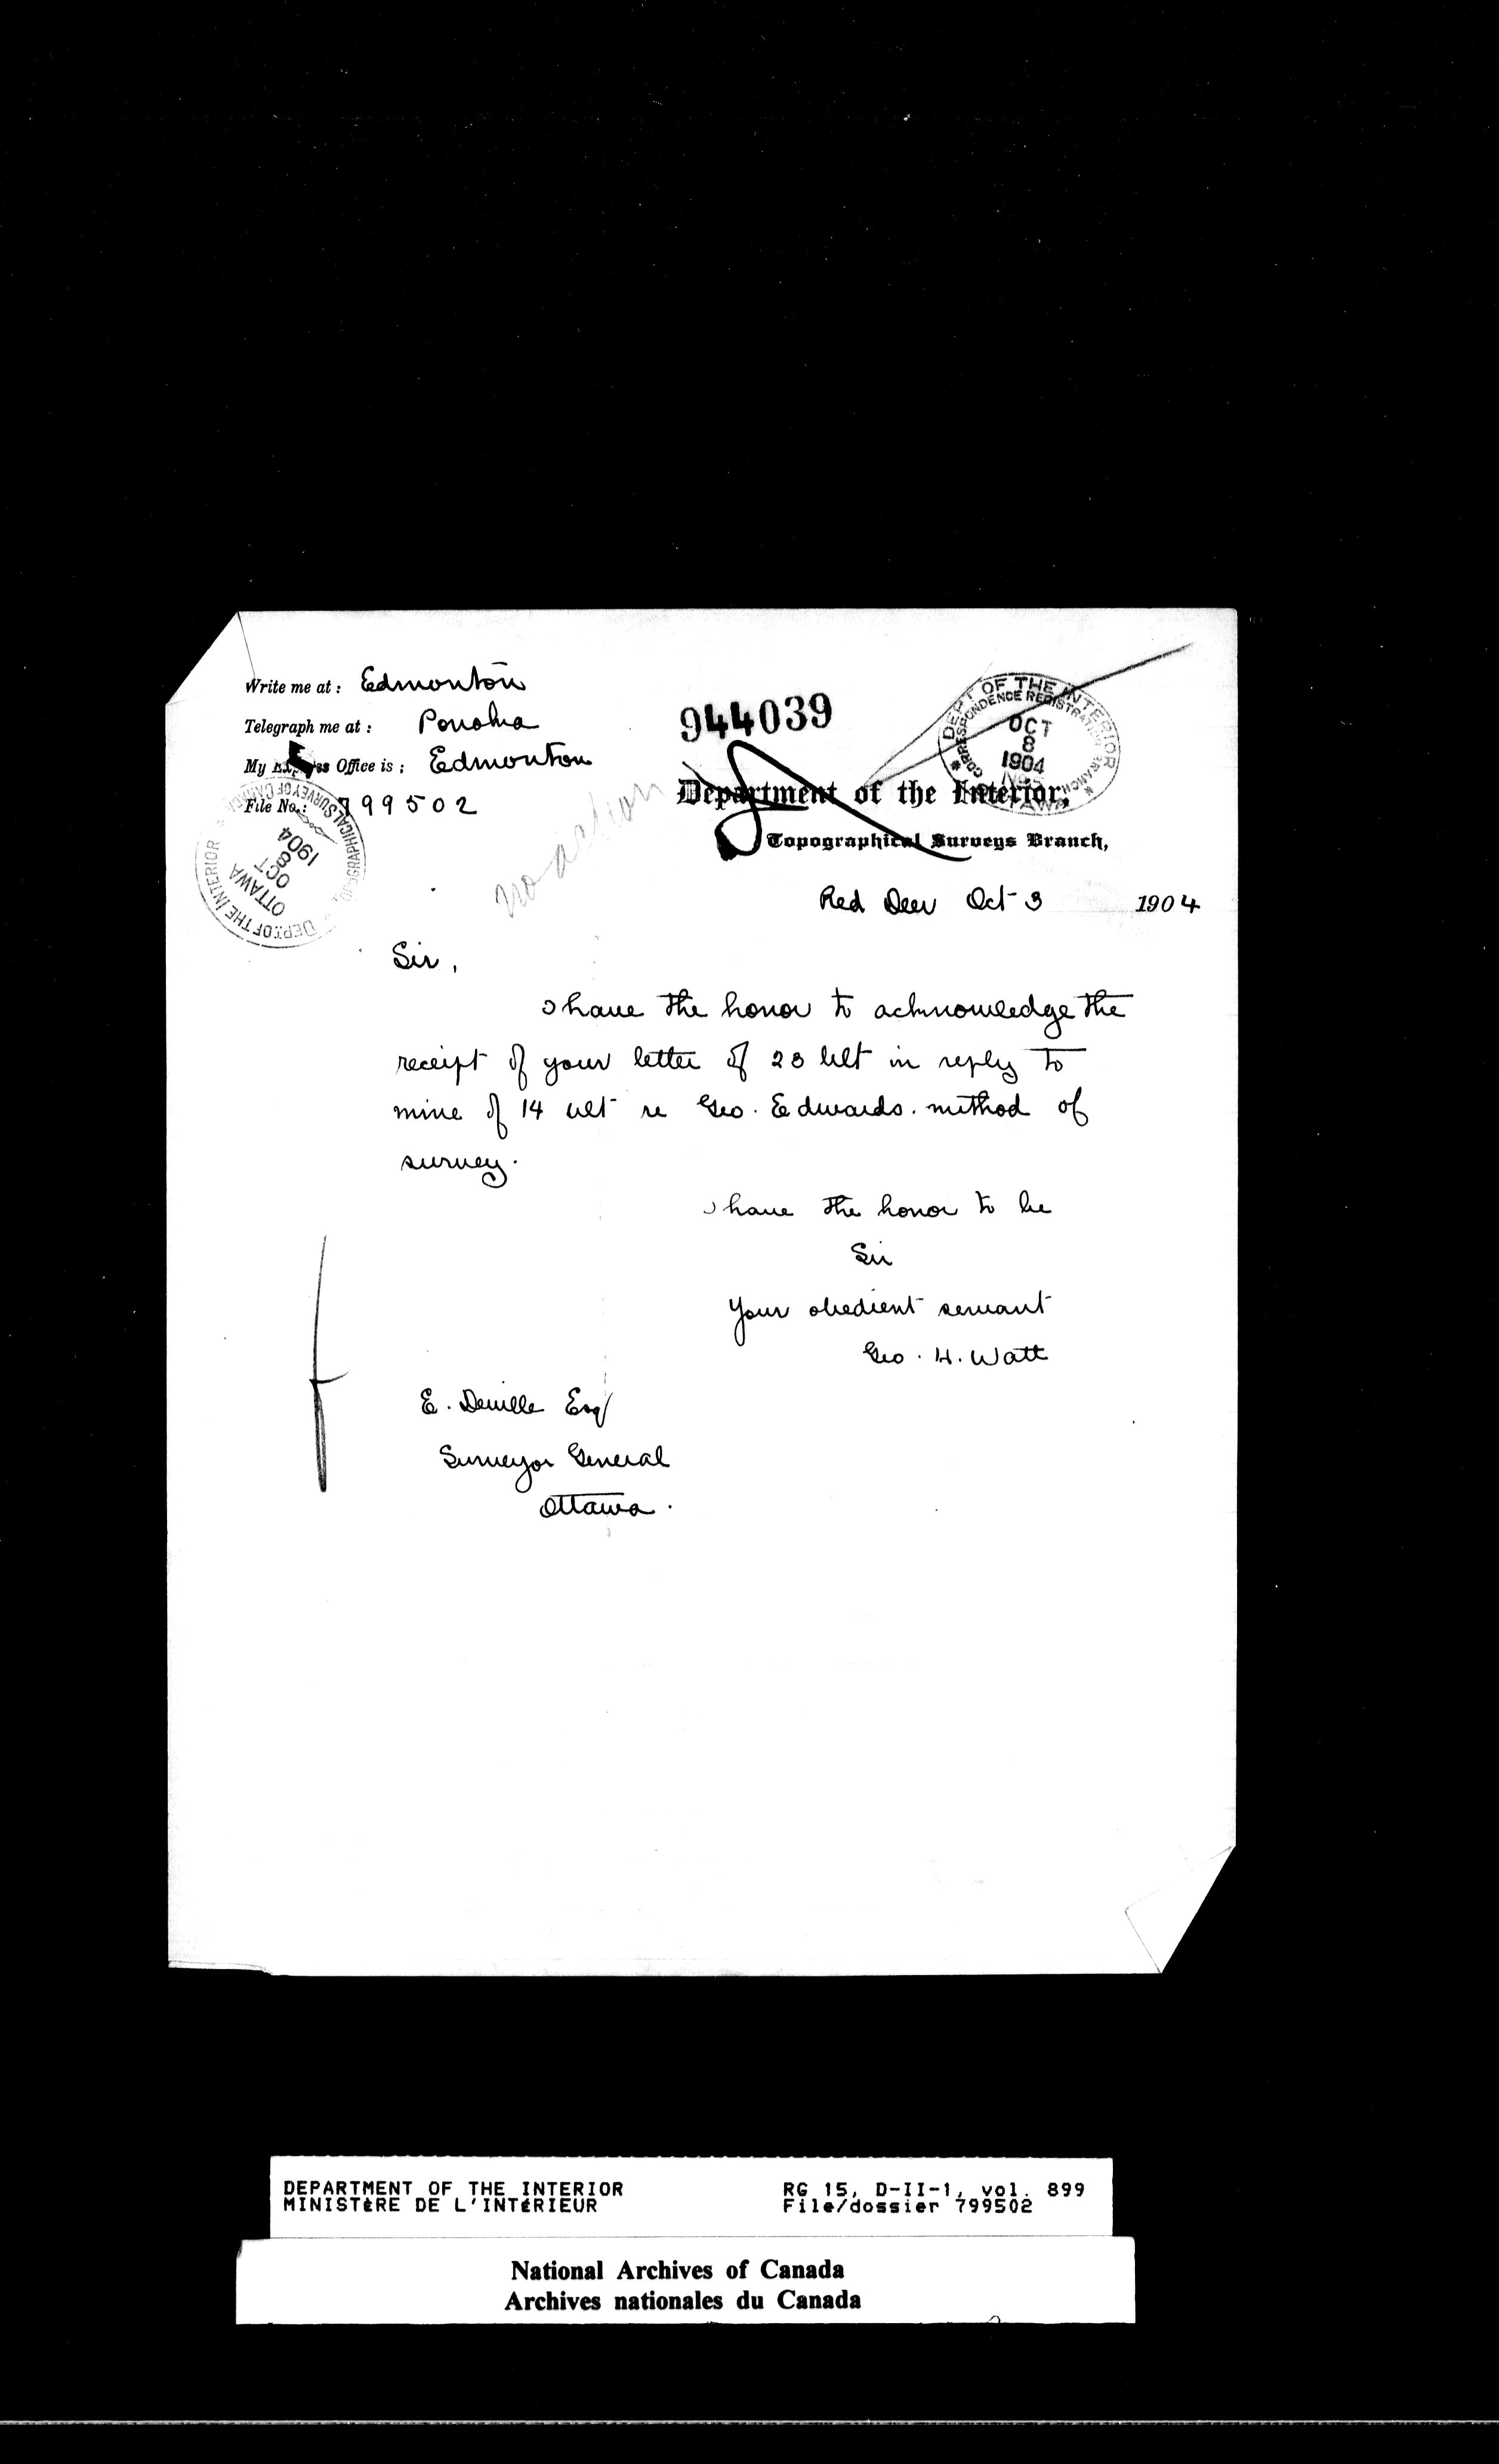 Write me at : Edmonton
Telegraph me at : Ponoka
My Express Office is : Edmonton
File No.: 799502
DEPT. OF THE INTERIOR
TOPOGRAPHICAL SURVEYS OF CANADA
OTTAWA
OCT
8
1904
no action
944039
DEPT OF THE INTERIOR
CORRESPONDENCE REGISTRATION BRANCH
OCT
8
1904
OTTAWA
Department of the Interior,
Topographical Surveys Branch,
Red Deer Oct 3 1904
Sir,
I have the honor to acknowledge the
receipt of your letter of 23 ult in reply to
mine of 14 ult re Geo. Edwards. method of
survey.
I have the honor to be
Sir
Your obedient servant
Geo. H. Watt
E. Deville Esq
Surveyor General
Ottawa.
DEPARTMENT OF THE INTERIOR
MINISTÈRE DE L'INTÉRIEUR
RG 15, D-II-1, vol. 899
File/dossier 799502
National Archives of Canada
Archives nationales du Canada